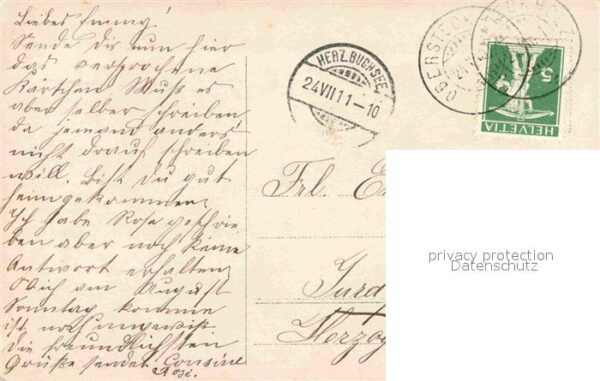 Liebes Emmy!
Sende dir nun hier
das versprochene
Kärtchen. Muss es
aber selber schreiben
da jemand anders
nicht drauf schreiben
will. Bist du gut
heimgekommen.
Ich habe Rosa geschrie
ben aber noch keine
Antwort erhalten
Ob ich am August
Sonntag komme
ist noch ungewiss.
Die freundlichsten
Grüße sendet Cousine
Rosi.
HERZ.BUCHSEE
24 VII 11-10
OBERSTE
5
HELVETIA
Frl. E
privacy protection
Datenschutz
Herzog